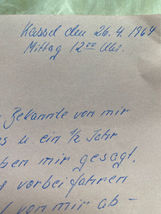 Kassel den 26.4.1969
Mittag 12 00 Uhr.
Bekannte von mir
u ein 1/2 Jahr
ben mir gesagt,
vorbei fahren
von mir ab -